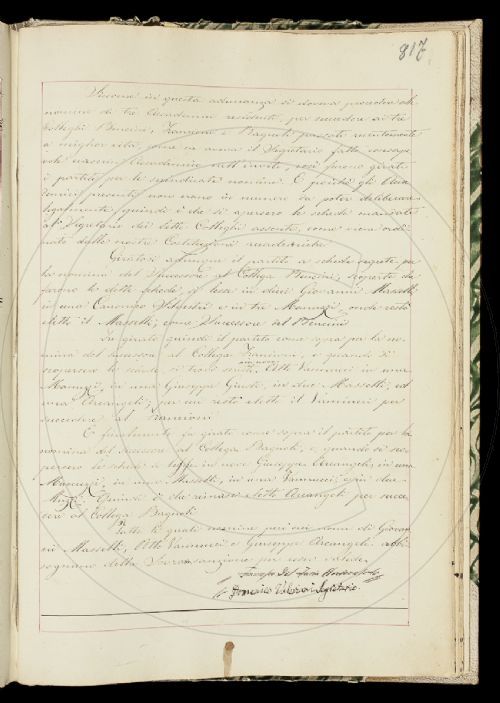 817
Siccome in questa adunanza si doveva procedere alla
nomina di tre Accademici residenti, per succedere ai tre
Colleghi Bencini, Franzoni e Bagnoli passati recentemente
a miglior vita, come ne aveva il Segretario fatta consape-
vole ciascun Accademico nell'invito, così furono girati
i partiti per le spindicate nomine. E poichè gli Acca-
demici presenti non erano in numero da poter deliberare
legalmente quindi è che si apersero le schede mandate
al Segretario dai Colleghi assenti, come viene ordi-
nato dalle nostre Costituzioni accademiche.
Giratosi adunque il partito a schede segrete per
la nomina del Successore al Collega Bencini, scoperte che
furono le dette schede, si lesse in dieci Giovanni Massetti
in una Canonico Silvestri e in tre Mannuzzi, onde restò
eletto il Massetti, come Successore del Bencini
In girato quindi il partito come sopra per la no-
mina del successore al Collega Franzioni, e quando si
scopersero le schede si trovò scritto, in nove Atto Vannucci in una
Mannuzzi, in una Giuseppe Giusti, in due Massetti, ed
una Arcangeli; per cui restò eletto il Vannucci per
succedere al Franzioni
E finalmente fu girato come sopra il partito per la
nomina del successore al Collega Bagnoli, e quando si sco-
persero le schede si lesse in nove Giuseppe Arcangeli, in una
Mannuzzi, in una Massetti, in una Vannucci e in due
Quindi è che rimase eletto Arcangeli per succe-
dere al Collega Bagnoli
Tutte le quali nomine però nei nomi di Giovan-
ni Massetti, Atto Vannucci e Giuseppe Arcangeli abbi-
sognano della Sovrana sanzione per esser valide.
Domenico Valeriani Segretario.